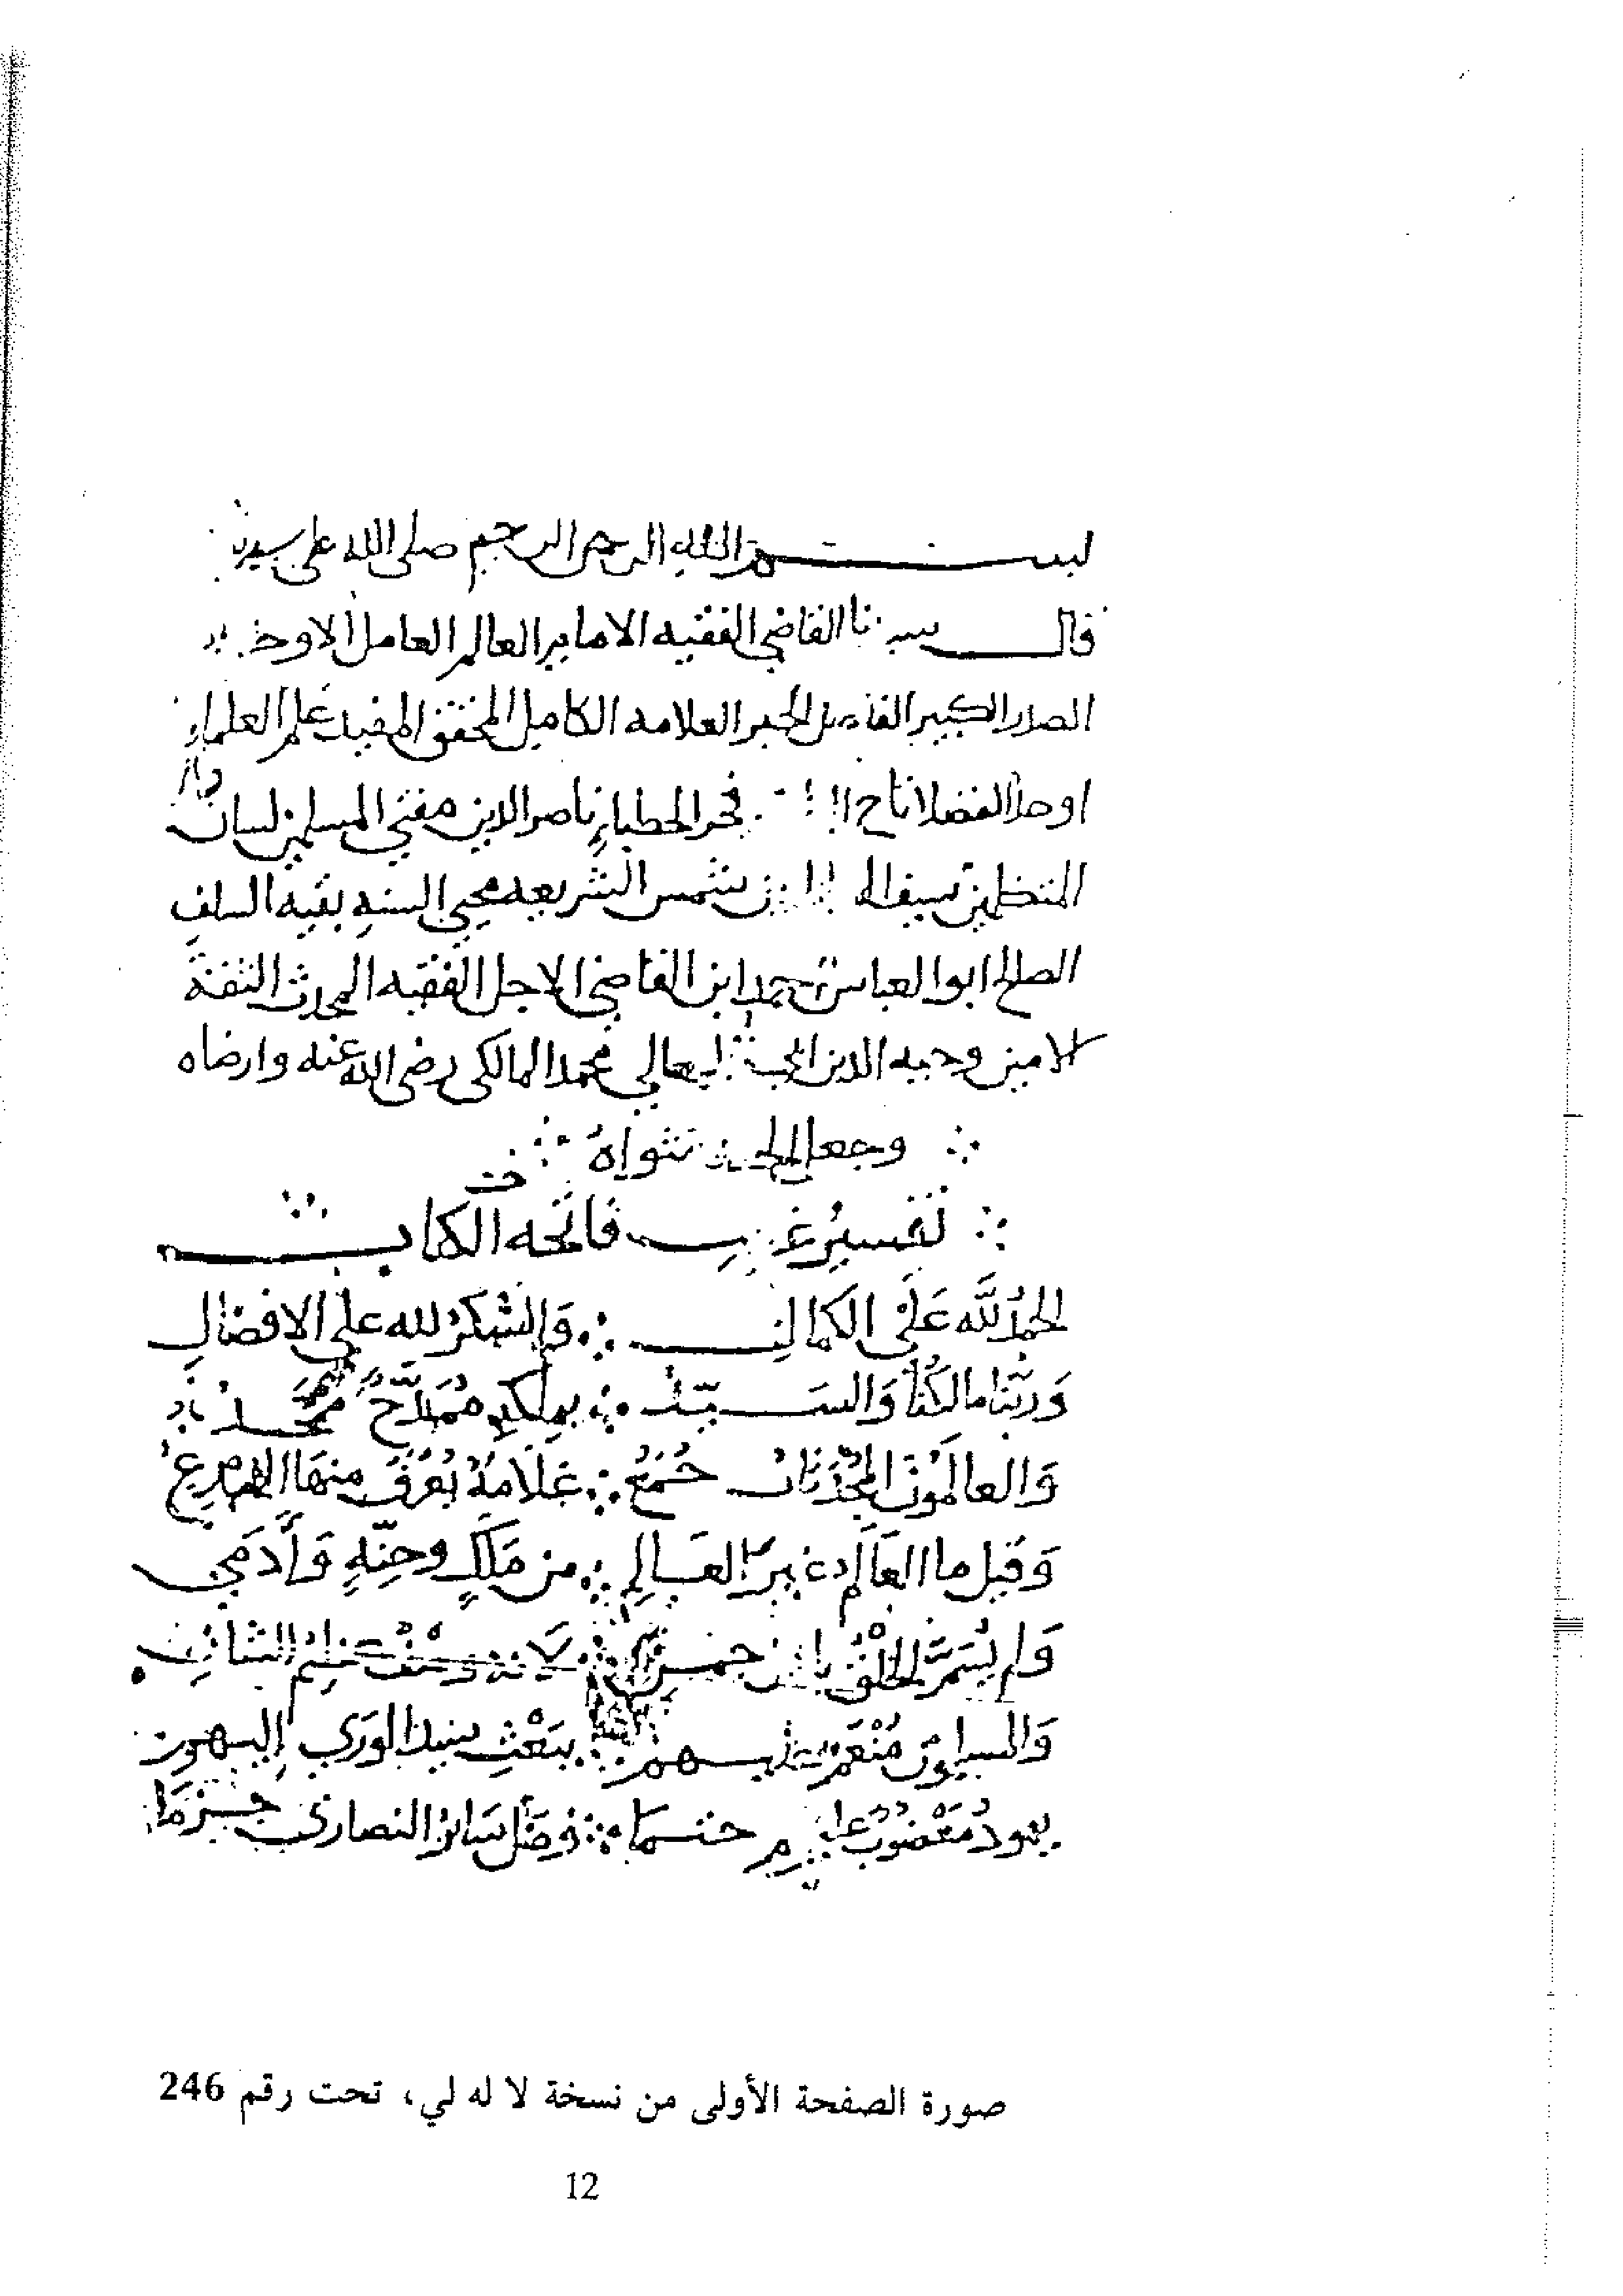 بسم الله الرحمن الرحيم صلى الله على سيدنا
قال سيدنا القاضي الفقيه الامام العالم العامل الاوحد
الصدر الكبير الفاضل الحبر العلامه الكامل المحقق المفيد علم العلماء
اوحد الفضلا تاج فخر الخطباء ناصر الدين مفتي المسلمين لسان
المتكلمين سيف شمس الشريعه محيي السنه بقيه السلف
الصالح ابو العباس احمد ابن القاضي الاجل الفقيه المحدث الثقة
الامين وجيه الدين المعالي محمد المالكي رضي الله عنه وارضاه
وجعل مثواه
تفسير غريب فاتحه الكتاب
الحمد لله على الكمال ∴ والشكر لله على الافضال
وربنا مالكنا والسيد ∴ بملكه ممدح
والعالمون المحدثات جمع ∴ علامة يعرف منها
وقيل ما العالم غير العالم ∴ من ملك وجنة وآدمي
ولم يتم الخلق ∴ لانه
والمسلمون منعم عليهم ∴ ببعث سيد الورى إليهم
يهود مغضوب عليهم حتما ∴ وضل سائر النصارى جزما
صورة الصفحة الأولى من نسخة لا له لي، تحت رقم 246
12